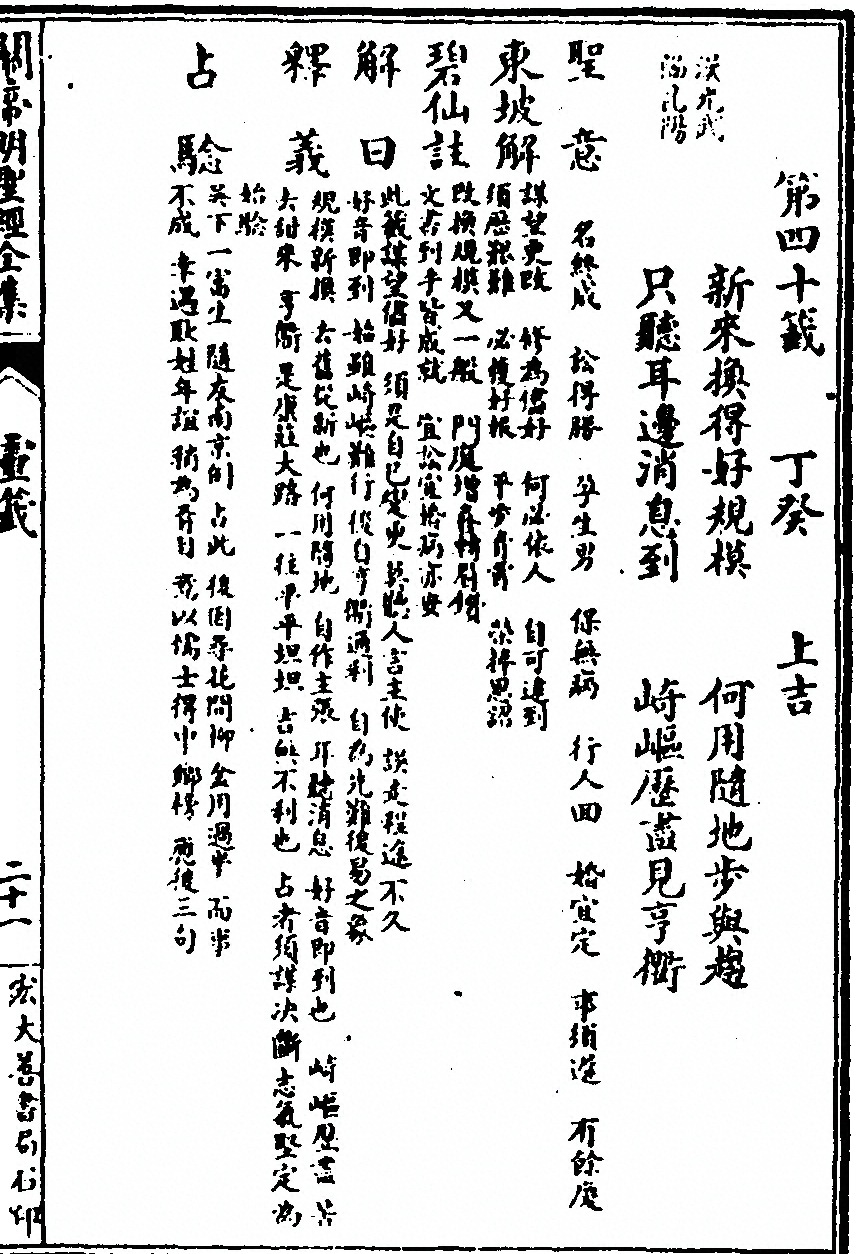 第四十籤 丁癸 上吉
漢光武
陷昆陽
新來換得好規模 何用隨地步與趨
只聽耳邊消息到 崎嶇歷盡見亨衢
聖意 名終成 訟得勝 孕生男 保無病 行人回 婚宜定 事須進 有餘慶
東坡解 謀望更改 修為儘好 何必依人 自可達到
須歷艱難 必獲好根 平步青雲 榮捧恩詔
碧仙註 改換規模又一般 門庭增喜
文書到手皆成就 宜訟宜婚病亦安
解曰 此籤謀望儘好 須是自已變更 莫聽人言主使 誤走程途 不久
好音即到 始雖崎嶇難行 後自亨衢通利 自為先難後易之象
釋義 規模新換 去舊從新也 何用隨地 自作主張 耳聽消息 好音即到也 崎嶇歷盡 苦
去甜來 亨衢 是康莊大路 一往平平坦坦 吉無不利也 占者須謀決斷志氣堅定 為
始驗
占驗 吳下一富生 隨友南京 占此 後因 而事
不成 幸遇 姓年誼 以儒士得中鄉榜 應後三句
關帝明聖經全集
靈籤
二十一
宏大善書局石印